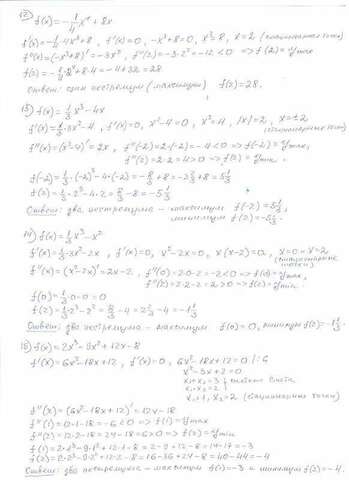 12) f(x) = -1/4 x⁴ + 8x
f'(x) = -1/4·4x³ + 8, f'(x) = 0, -x³+8=0, x³=8, x=2 (стационарная точка)
f''(x) = (-x³+8)' = -3x², f''(2) = -3·2² = -12 < 0 => f(2) = y max
Ответ: один экстремум (максимум) f(2) = 28.
13) f(x) = 1/3 x³ - 4x
f'(x) = 1/3·3x² - 4, f'(x) = 0, x²-4=0, x²=4, |x|=2, x=±2
(стационарные точки)
f''(x) = (x²-4)' = 2x, f''(-2) = 2·(-2) = -4 < 0 => f(-2) = y max,
f''(2) = 2·2 = 4 > 0 => f(2) = y min.
f(-2) = 1/3·(-2)³ - 4·(-2) = -8/3 + 8 = -2 2/3 + 8 = 5 1/3
f(2) = 1/3·2³ - 4·2 = 8/3 - 8 = -5 1/3
Ответ: два экстремума - максимум f(-2) = 5 1/3,
минимум f(2) = -5 1/3.
14) f(x) = 1/3 x³ - x²
f'(x) = 1/3·3x² - 2x, f'(x) = 0, x²-2x=0, x(x-2)=0, x=0 x=2
(стационарные точки)
f''(x) = (x²-2x)' = 2x-2, f''(0) = 2·0-2 = -2 < 0 => f(0) = y max
f''(2) = 2·2-2 = 2 > 0 => f(2) = y min.
f(0) = 1/3·0 - 0 = 0
f(2) = 1/3·2³ - 2² = 8/3 - 4 = 2 2/3 - 4 = -1 1/3
Ответ: два экстремума - максимум f(0) = 0, минимум f(2) = -1 1/3.
15) f(x) = 2x³ - 9x² + 12x - 8
f'(x) = 6x² - 18x + 12, f'(x) = 0, 6x² - 18x + 12 = 0 |:6
x² - 3x + 2 = 0
x₁+x₂=3
x₁·x₂=2
x₁=1, x₂=2 (стационарные точки)
f''(x) = (6x² - 18x + 12)' = 12x - 18
f''(1) = 12·1 - 18 = -6 < 0 => f(1) = y max
f''(2) = 12·2 - 18 = 24 - 18 = 6 > 0 => f(2) = y min
f(1) = 2·1³ - 9·1² + 12·1 - 8 = 2 - 9 + 12 - 8 = 14 - 17 = -3
f(2) = 2·2³ - 9·2² + 12·2 - 8 = 16 - 36 + 24 - 8 = 40 - 44 = -4
Ответ: два экстремума - максимум f(1) = -3 и минимум f(2) = -4.